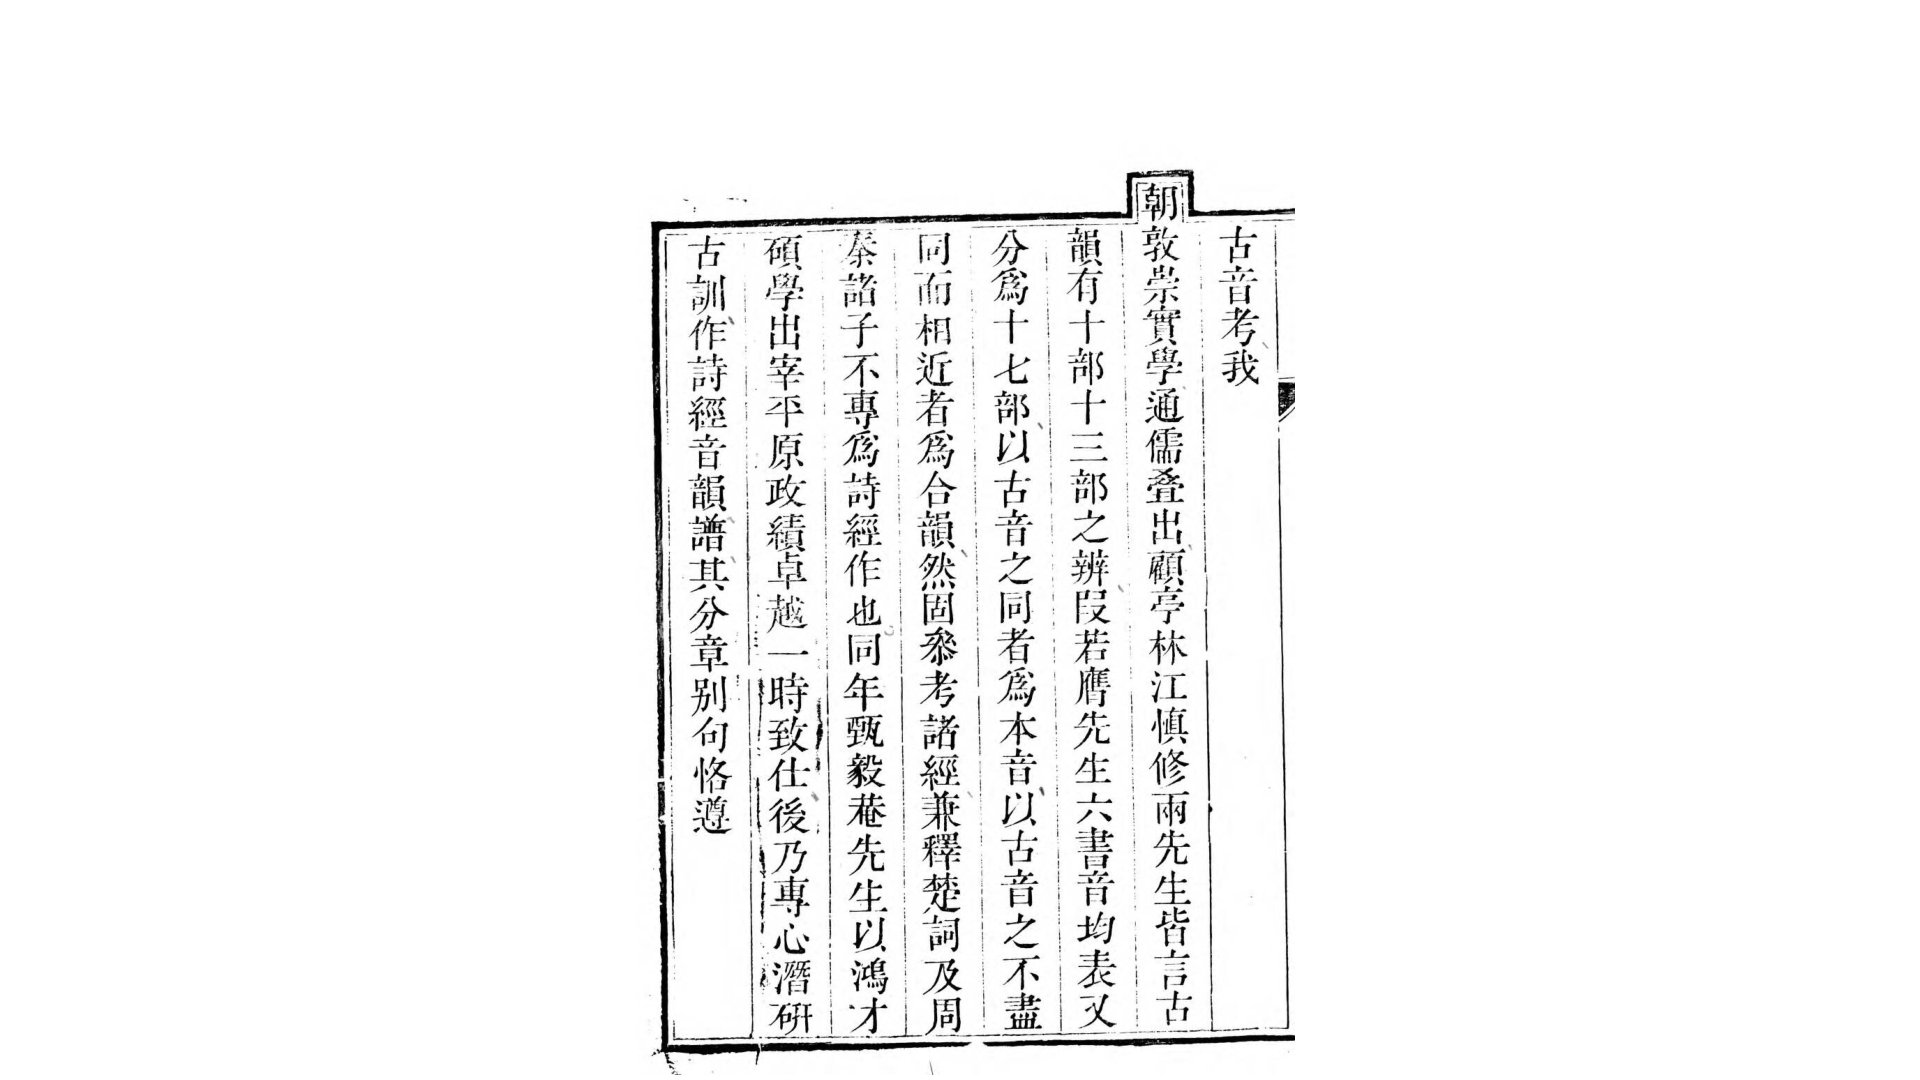 古音考我
朝敦崇實學通儒叠出顧亭林江慎修兩先生皆言古
韻有十部十三部之辨段若膺先生六書音均表又
分爲十七部以古音之同者爲本音以古音之不盡
同而相近者爲合韻然固叅考諸經兼釋楚詞及周
秦諸子不專爲詩經作也同年甄毅菴先生以鴻才
碩學出宰平原政績卓越一時致仕後乃專心潛硏
古訓作詩經音韻譜其分章別句恪遵